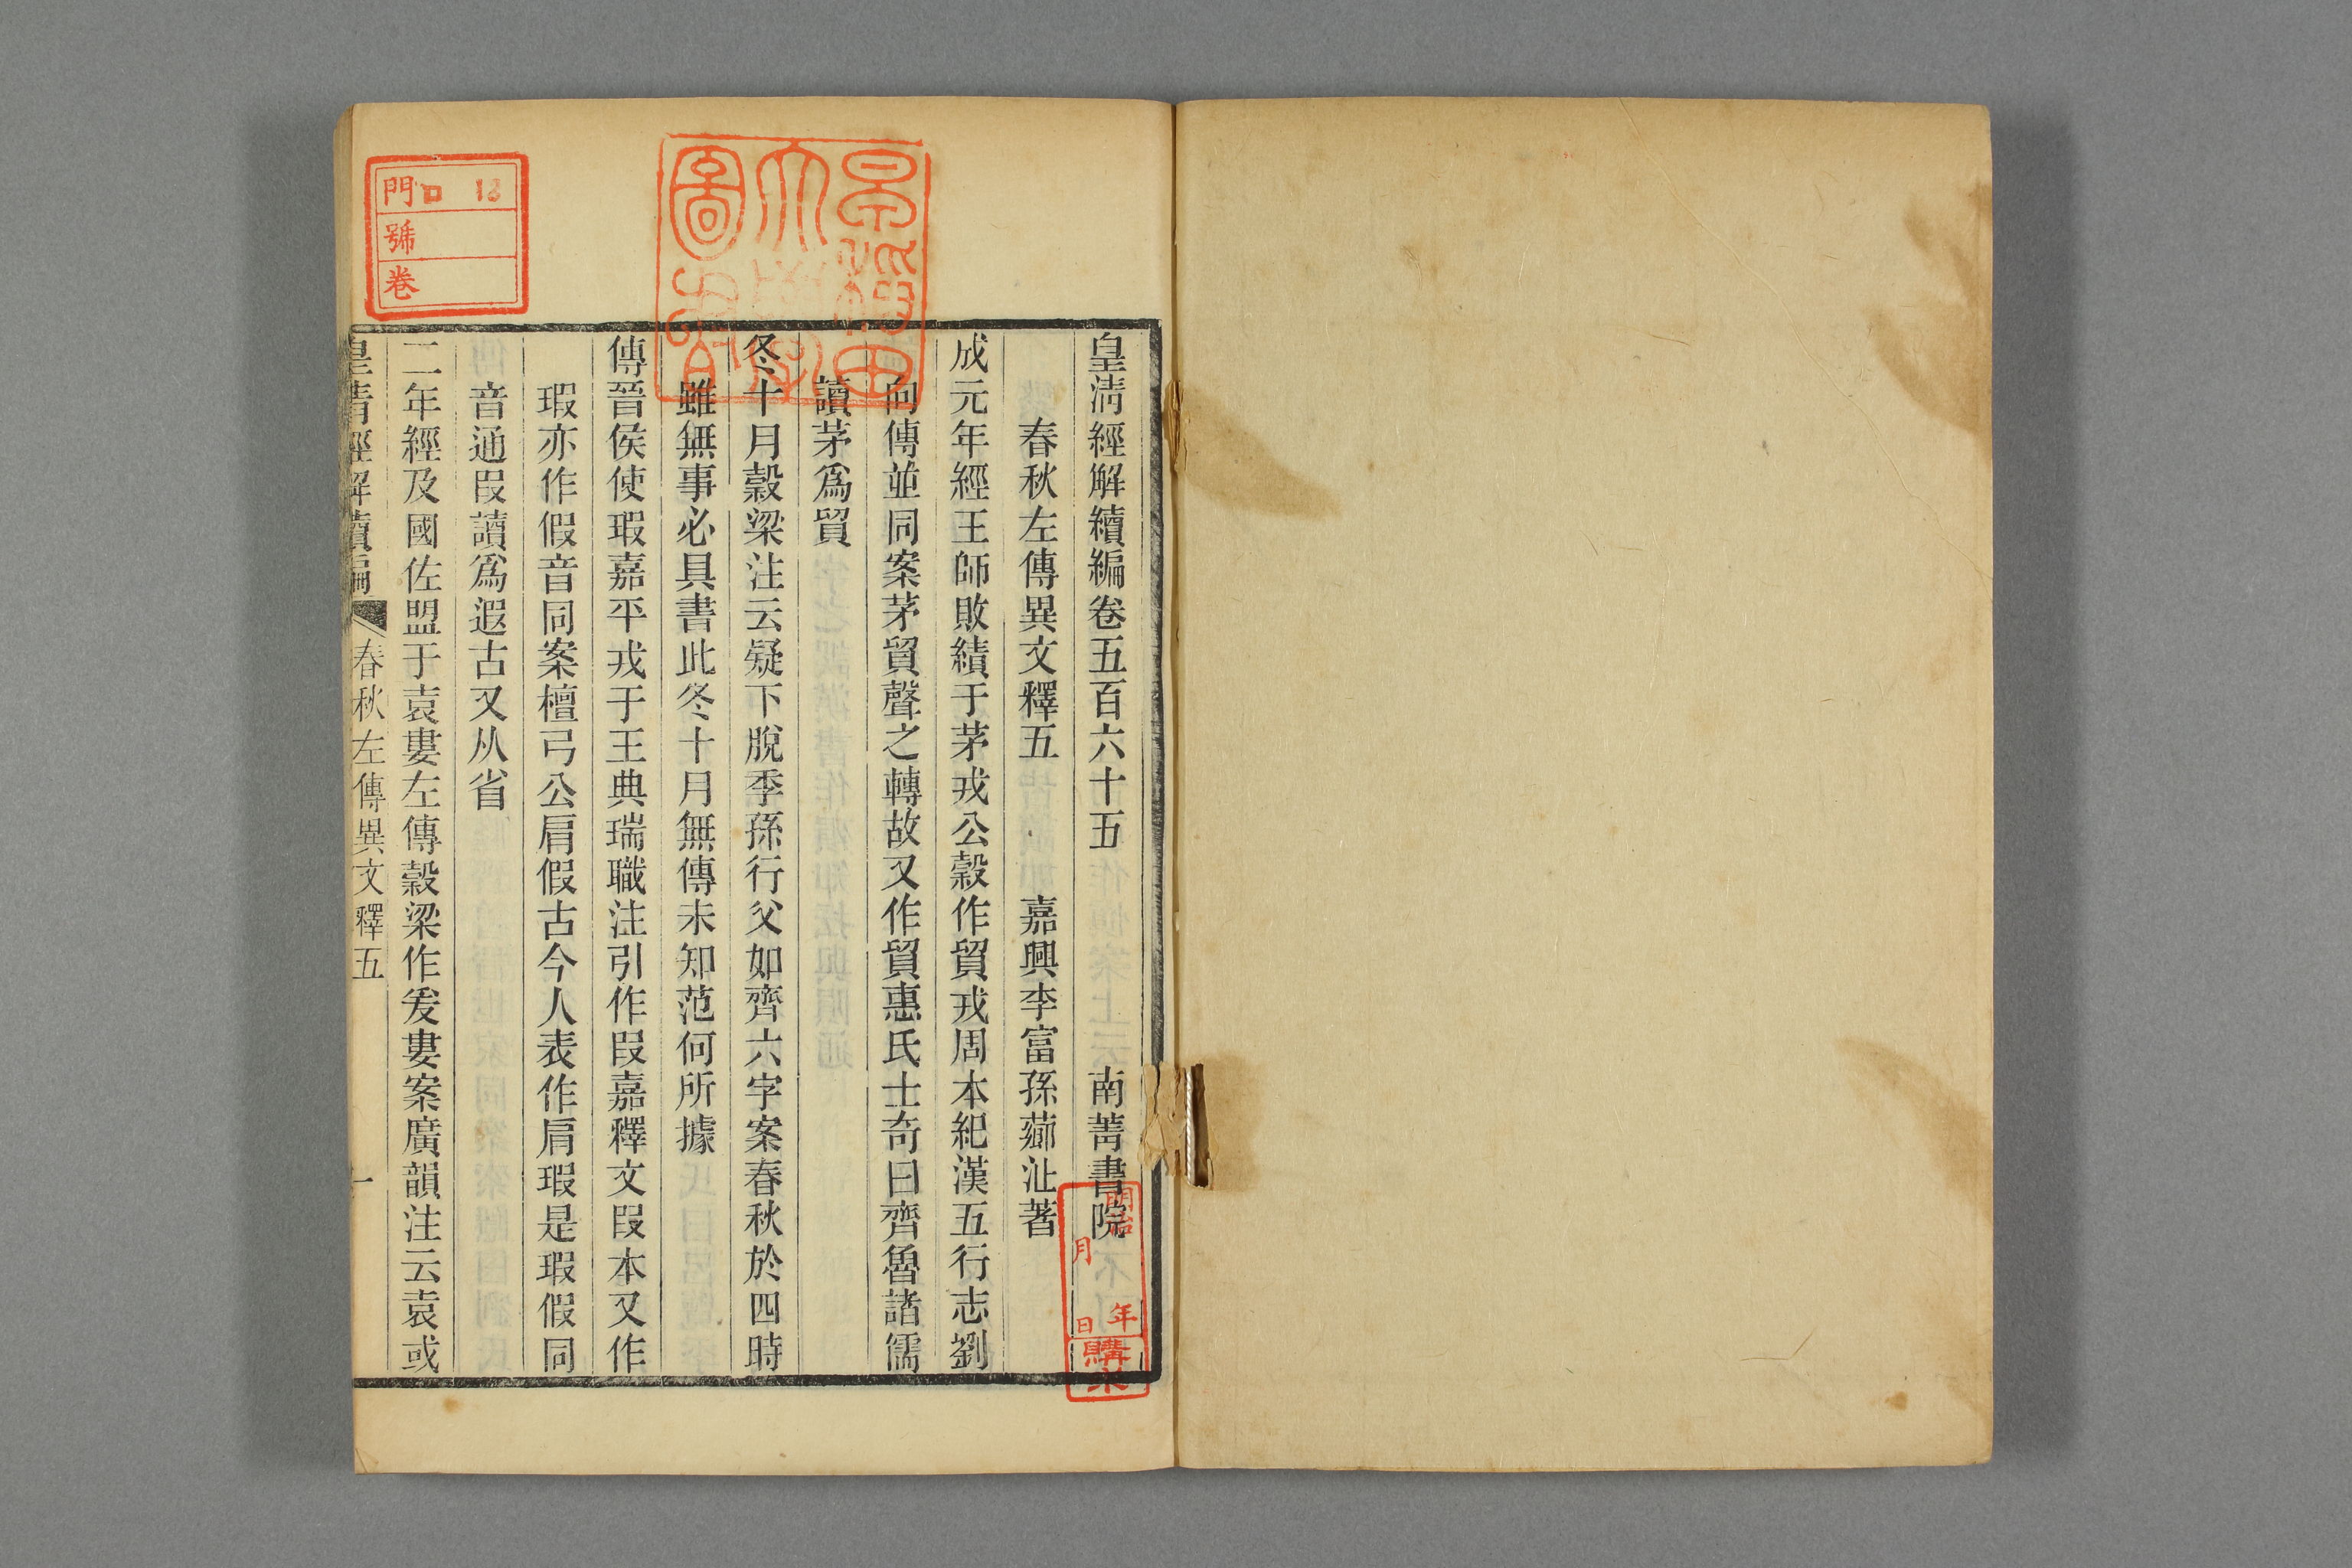 皇清經解續編卷五百六十五　南菁書院
春秋左傳異文釋五　嘉興李富孫薌沚著
成元年經王師敗績于茅戎公穀作貿戎周本紀漢五行志劉
向傳並同案茅貿聲之轉故又作貿惠氏士奇曰齊魯諸儒
讀茅爲貿
冬十月穀梁注云疑下脫季孫行父如齊六字案春秋於四時
雖無事必具書此冬十月無傳未知范何所據
傳晉侯使瑕嘉平戎于王典瑞職注引作叚嘉釋文叚本又作
瑕亦作假音同案檀弓公肩假古今人表作肩瑕是瑕假同
音通叚讀爲遐古又从省
二年經及國佐盟于袁婁左傳穀梁作爰婁案廣韻注云袁或
皇清經解續編　春秋左傳異文釋五　一
門 口 13
號
卷
早稲田
大學
圖書
明治
年
月
日
購求